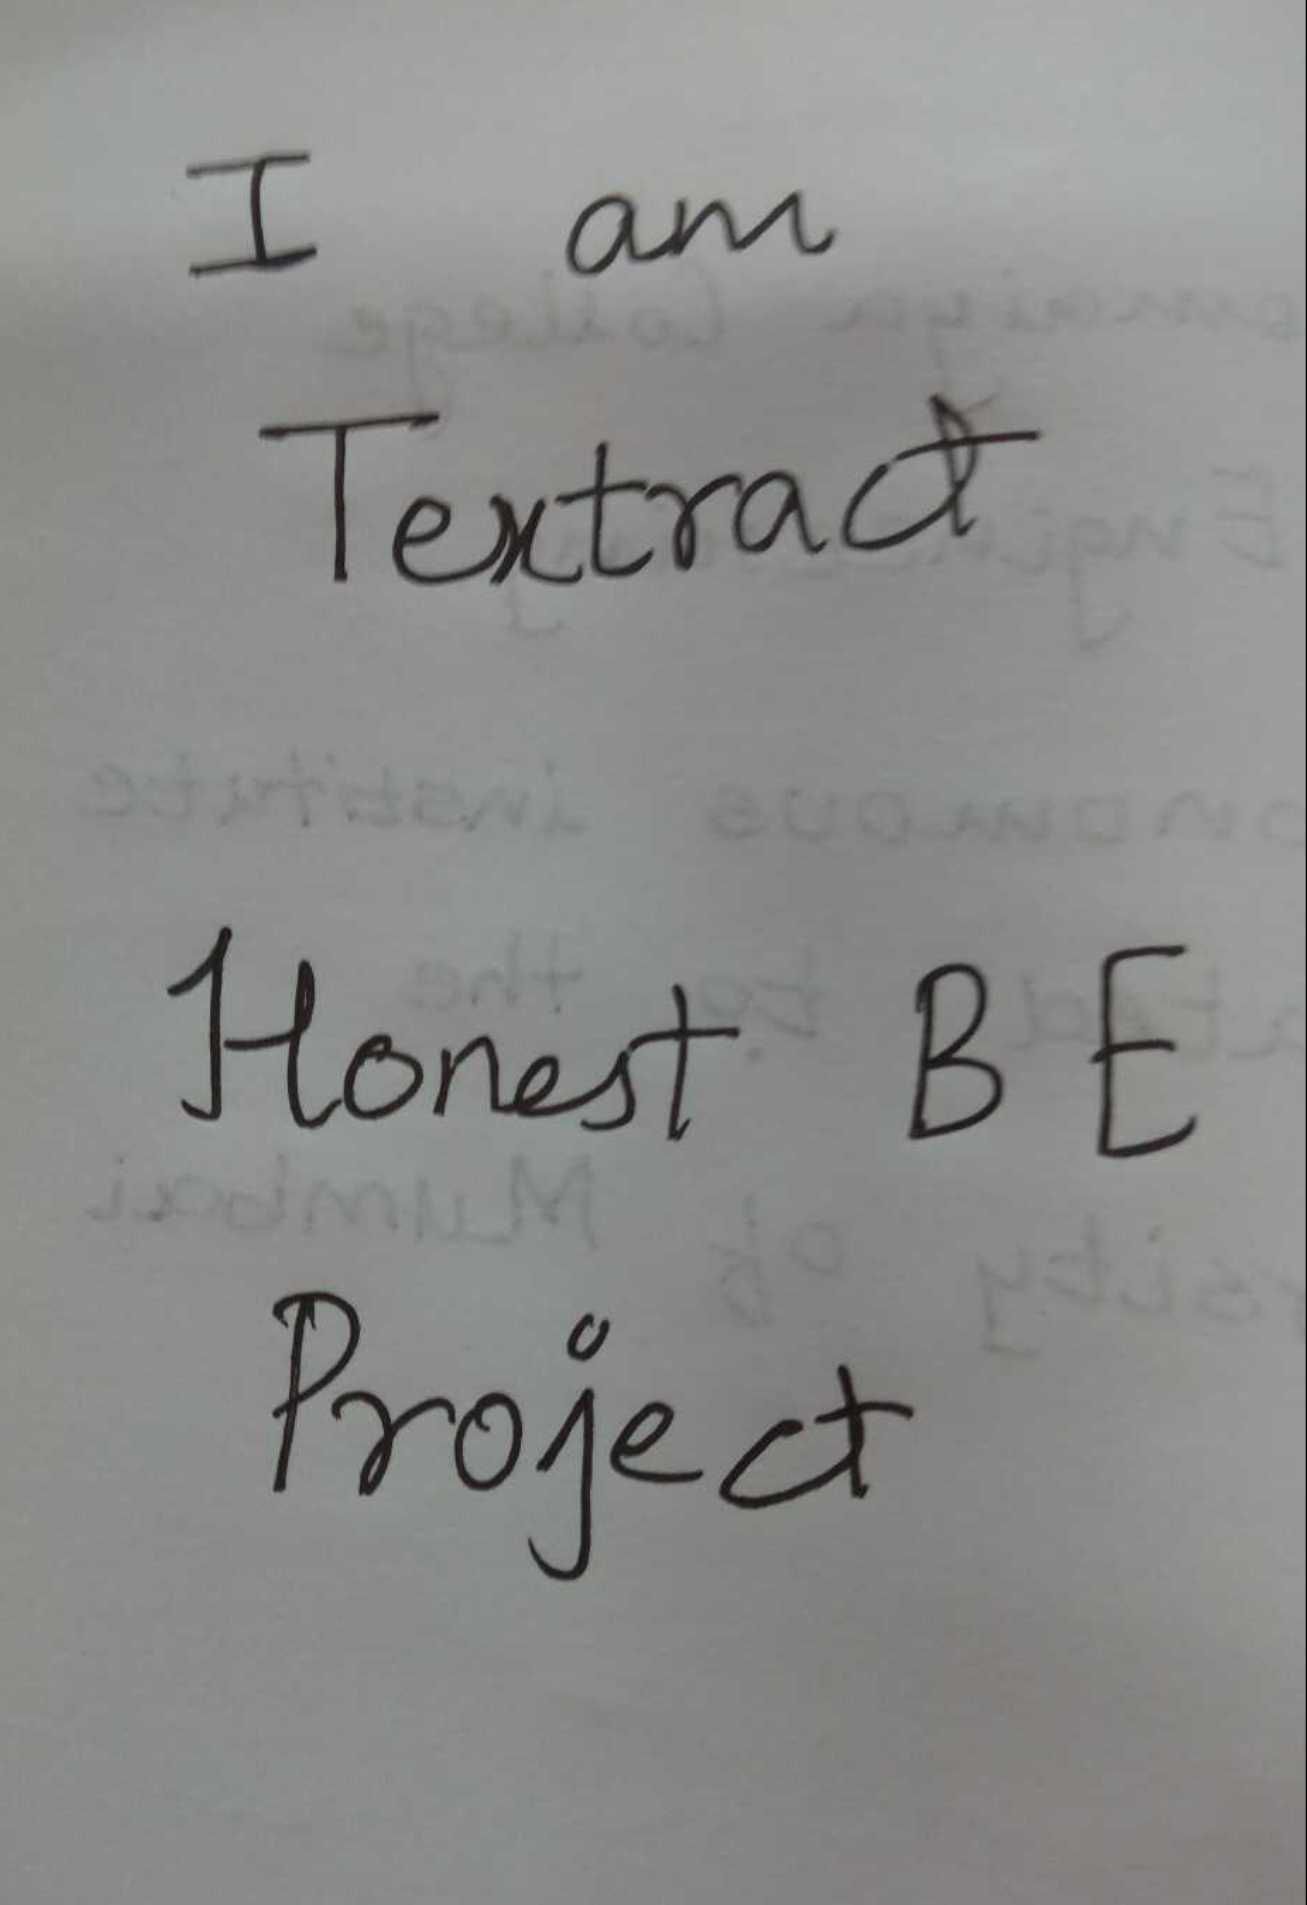 I am
Textract
Honest BE
Project